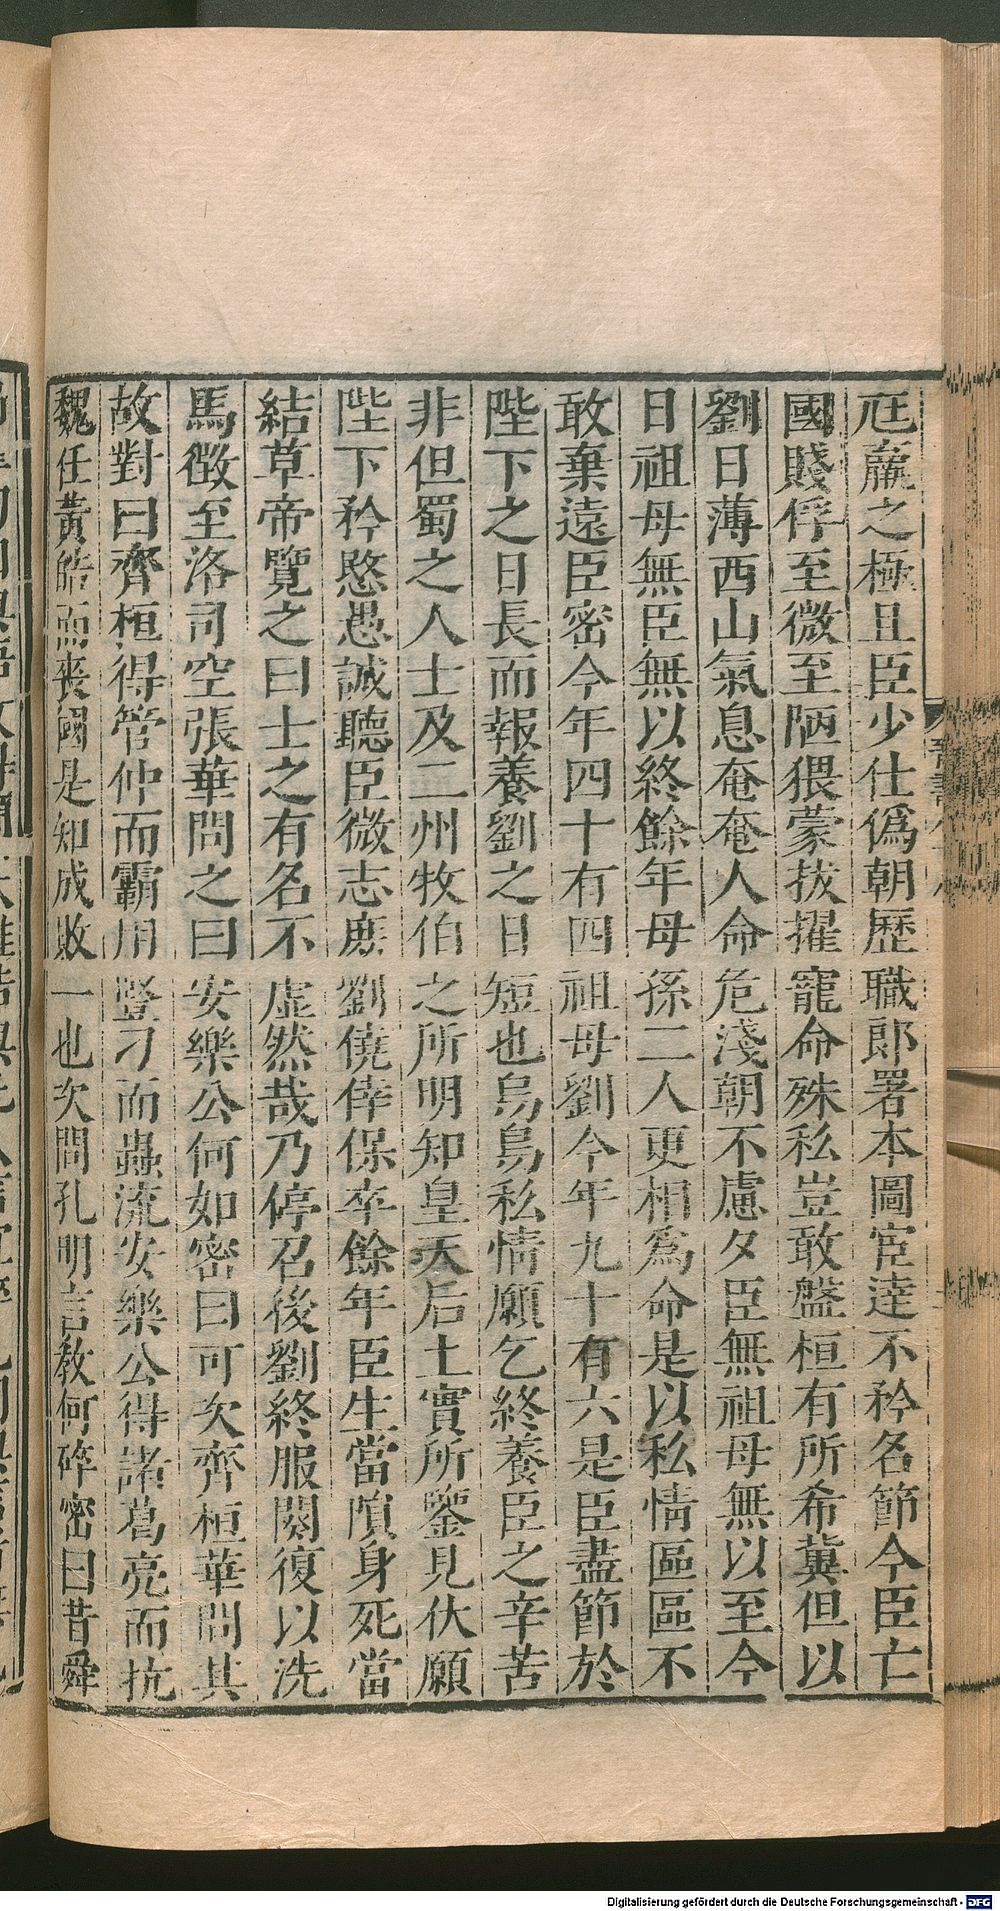 尪羸之極且臣少仕僞朝歷職郎署本圖宦達不矜名節今臣亡
國賤俘至微至陋猥蒙拔擢寵命殊私豈敢盤桓有所希冀但以
劉日薄西山氣息奄奄人命危淺朝不慮夕臣無祖母無以至今
日祖母無臣無以終餘年母孫二人更相爲命是以私情區區不
敢棄遠臣密今年四十有四祖母劉今年九十有六是臣盡節於
陛下之日長而報養劉之日短也烏鳥私情願乞終養臣之辛苦
非但蜀之人士及二州牧伯之所明知皇天后土實所鑒見伏願
陛下矜愍愚誠聽臣微志庶劉僥倖保卒餘年臣生當隕身死當
結草帝覽之曰士之有名不虛然哉乃停召後劉終服闋復以洗
馬徵至洛司空張華問之曰安樂公何如密曰可次齊桓華問其
故對曰齊桓得管仲而霸用豎刁而蟲流安樂公得諸葛亮而抗
魏任黃皓而喪國是知成敗一也次問孔明言教何碎密曰昔舜
Digitalisierung gefördert durch die Deutsche Forschungsgemeinschaft - DFG